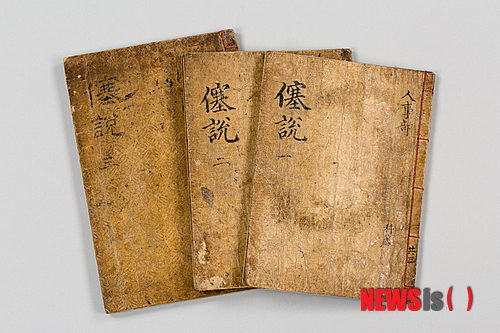 僿說 三
僿說 二
僿說 一
人事
NEWSis( )